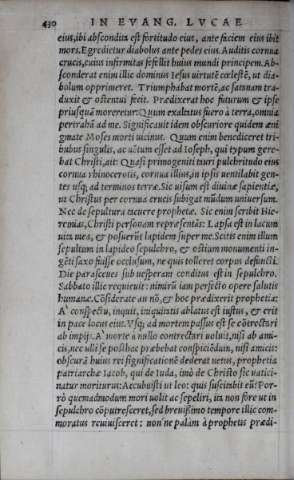 430 IN EVANG. LVCAE
eius, ibi abscondita est fortitudo eius, ante faciem eius ibit
mors. Egredietur diabolus ante pedes eius. Auditis cornua
crucis, cuius infirmitas fefellit huius mundi principem. Ab-
sconderat enim illic dominus Iesus uirtutē cœlestē, ut dia-
bolum opprimeret. Triumphabat mortē, ac satanam tra-
duxit & ostentui fecit. Prædixerat hoc futurum & ipse
priusquā moreretur: Quum exaltatus fuero à terra, omnia
pertrahā ad me. Significauit idem obscuriore quidem æni
gmate Moses morti uicinus. Quum enim benediceret tri-
bubus singulis, ac uētum esset ad Ioseph, qui typum gere-
bat Christi, ait: Quasi primogeniti tauri pulchritudo eius
cornua rhinocerotis, cornua illius, in ipsis uentilabit gen-
tes usq; ad terminos terræ. Sic uisum est diuinæ sapientiæ,
ut Christus per cornua crucis subigat mūdum uniuersum.
Nec de sepultura tacuere prophetæ. Sic enim scribit Hie-
remias, Christi personam repræsentās: Lapsa est in lacum
uita mea, & posuerūt lapidem super me. Scitis enim illum
sepultum in lapideo sepulchro, & ostium monumenti in-
gēti saxo fuisse occlusum, ne quis tolleret corpus defuncti.
Die parasceues sub uesperam conditus est in sepulchro.
Sabbato illic requieuit: nimirū iam perfecto opere salutis
humanæ. Cōsiderate an nō, & hoc prædixerit prophetia:
A' conspectu, inquit, iniquitatis ablatus est iustus, & erit
in pace locus eius. Vsq; ad mortem passus est se cōtrectari
ab impijs. A' morte à nullo contrectari uoluit, nisi ab ami-
cis, nec ulli se posthac præbebat conspiciēdum, nisi amicis:
obscurā huius rei significationē dederat uetus, prophetia
patriarchæ Iacob, qui de Iuda, imò de Christo sic uatici-
natur morituro: Accubuisti ut leo: quis suscitabit eū? Por-
rò quemadmodum mori uoluit ac sepeliri, ita non fore ut in
sepulchro cōputresceret, sed breuissimo tempore illic com-
moratus reuiuisceret: nonne palàm à prophetis prædi-